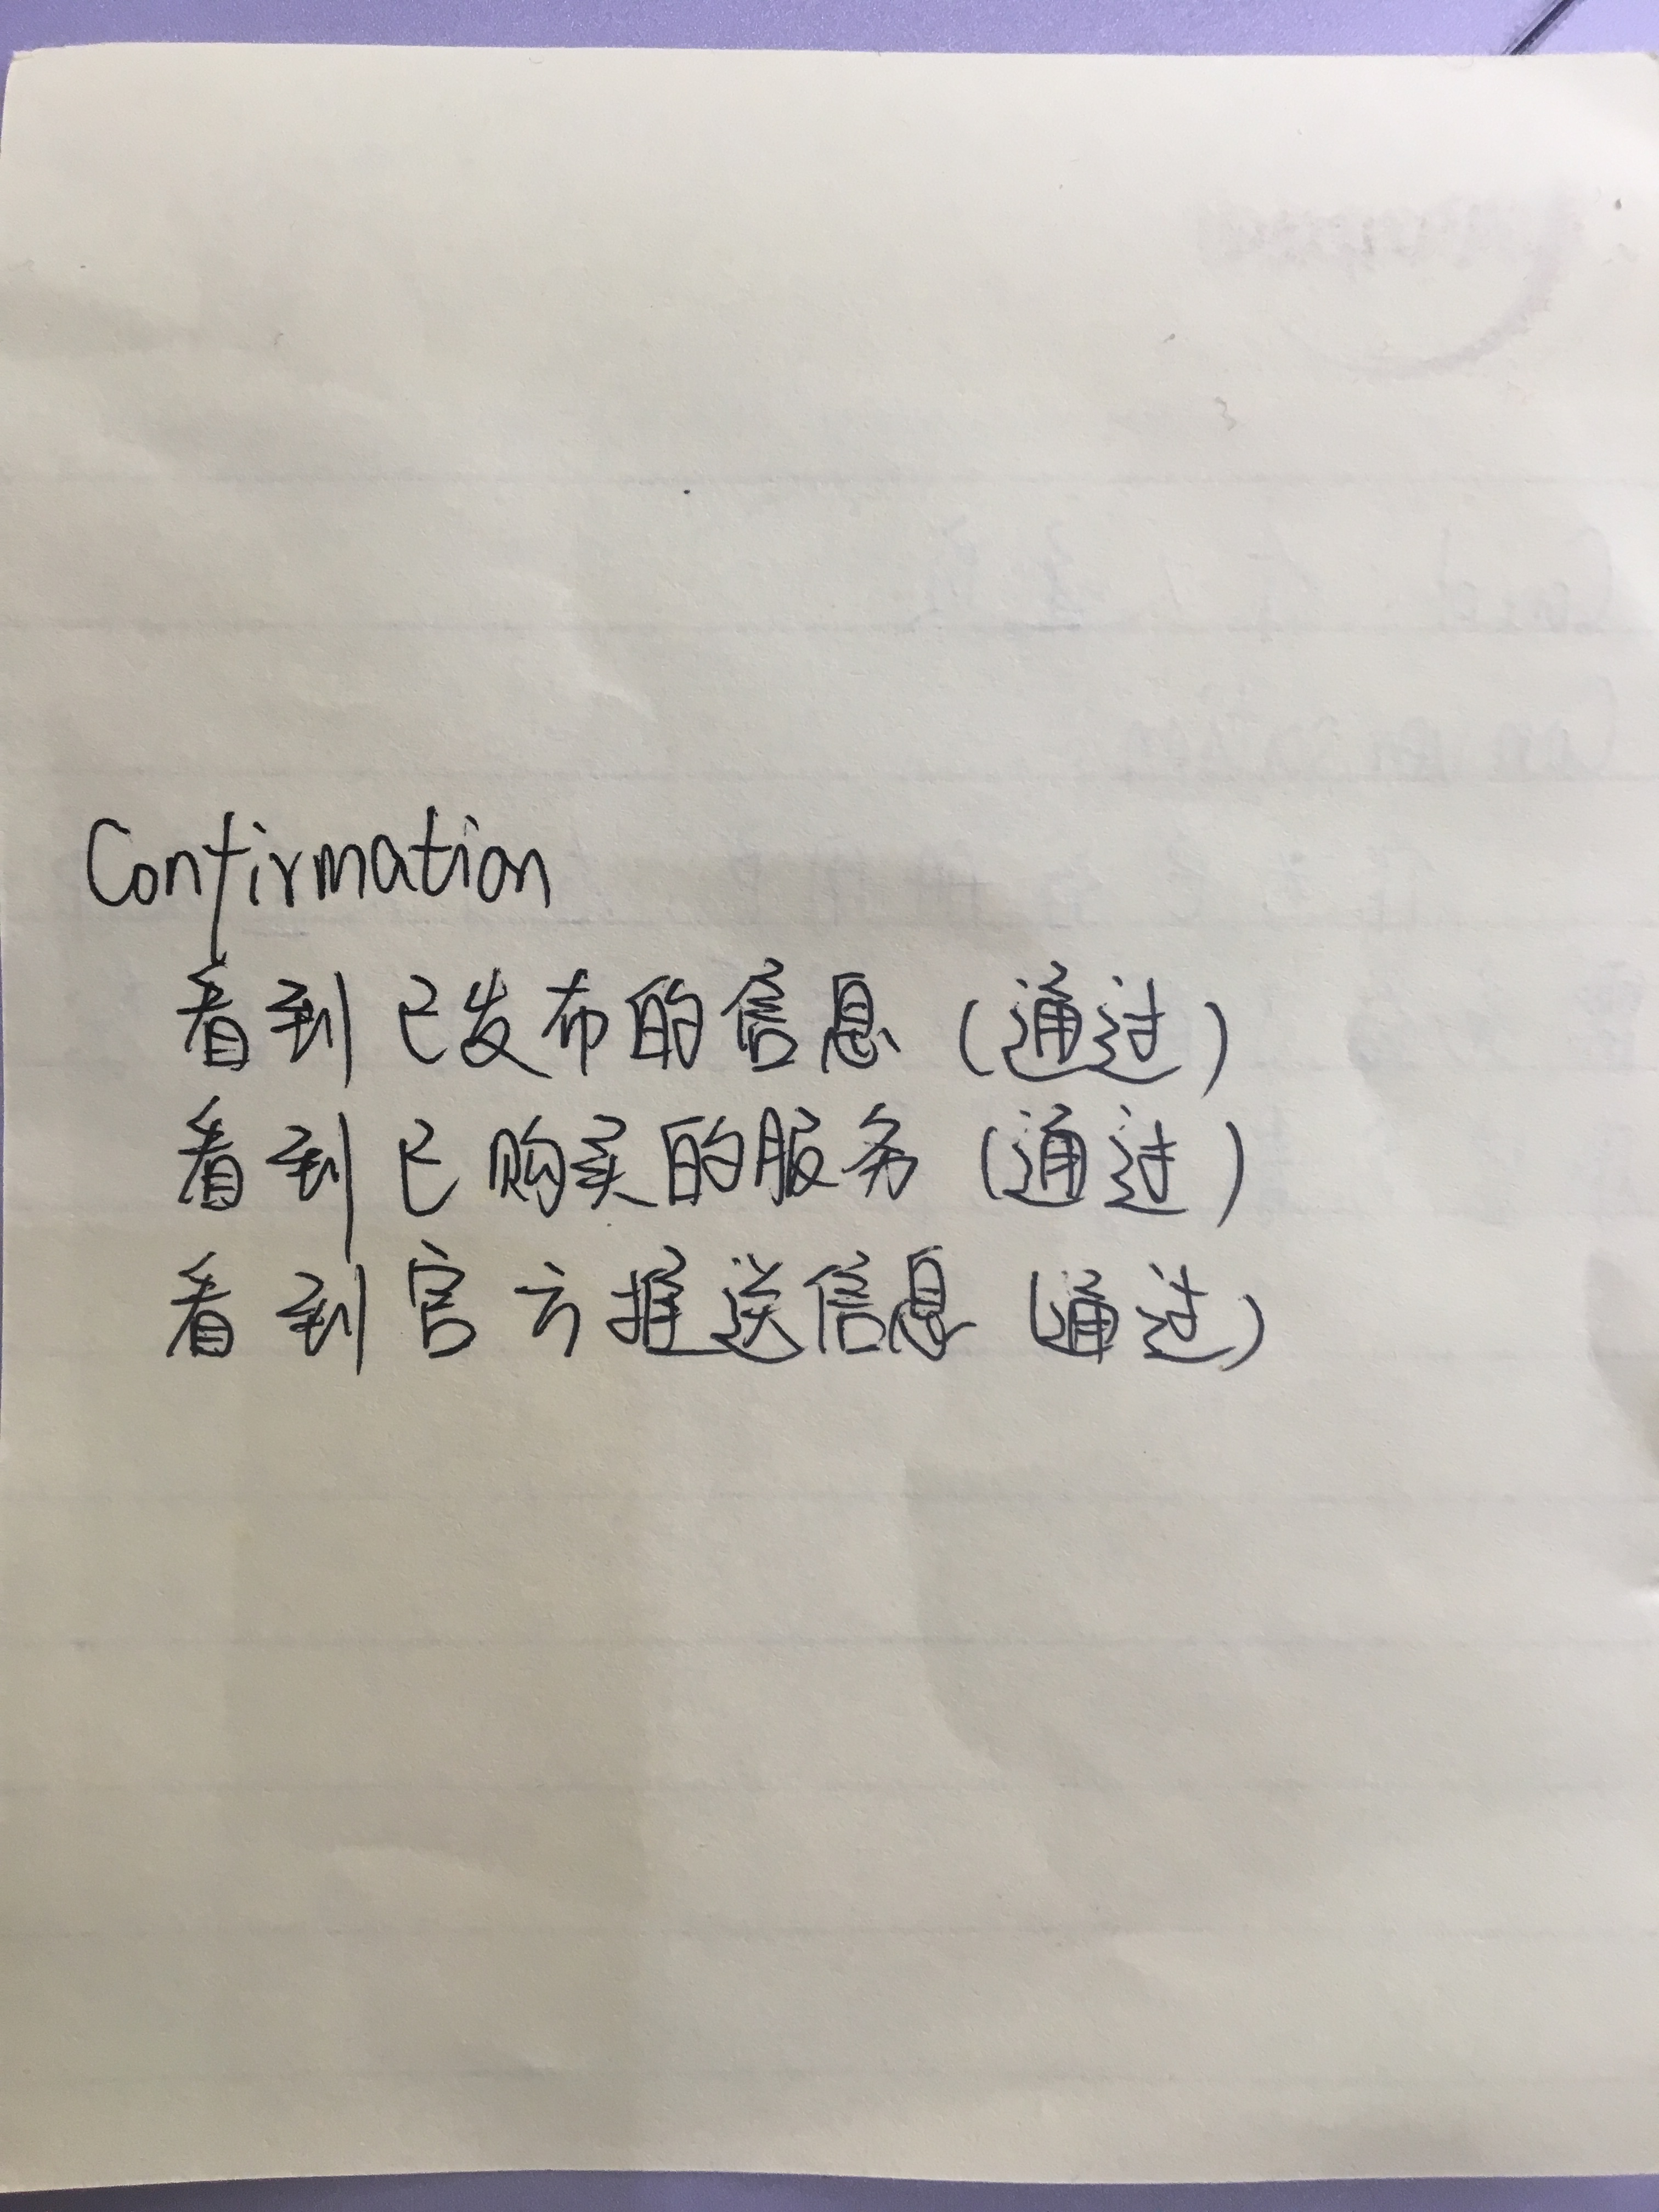 Confirmation
看到已发布的信息（通过）
看到已购买的服务（通过）
看到官方推送信息（通过）